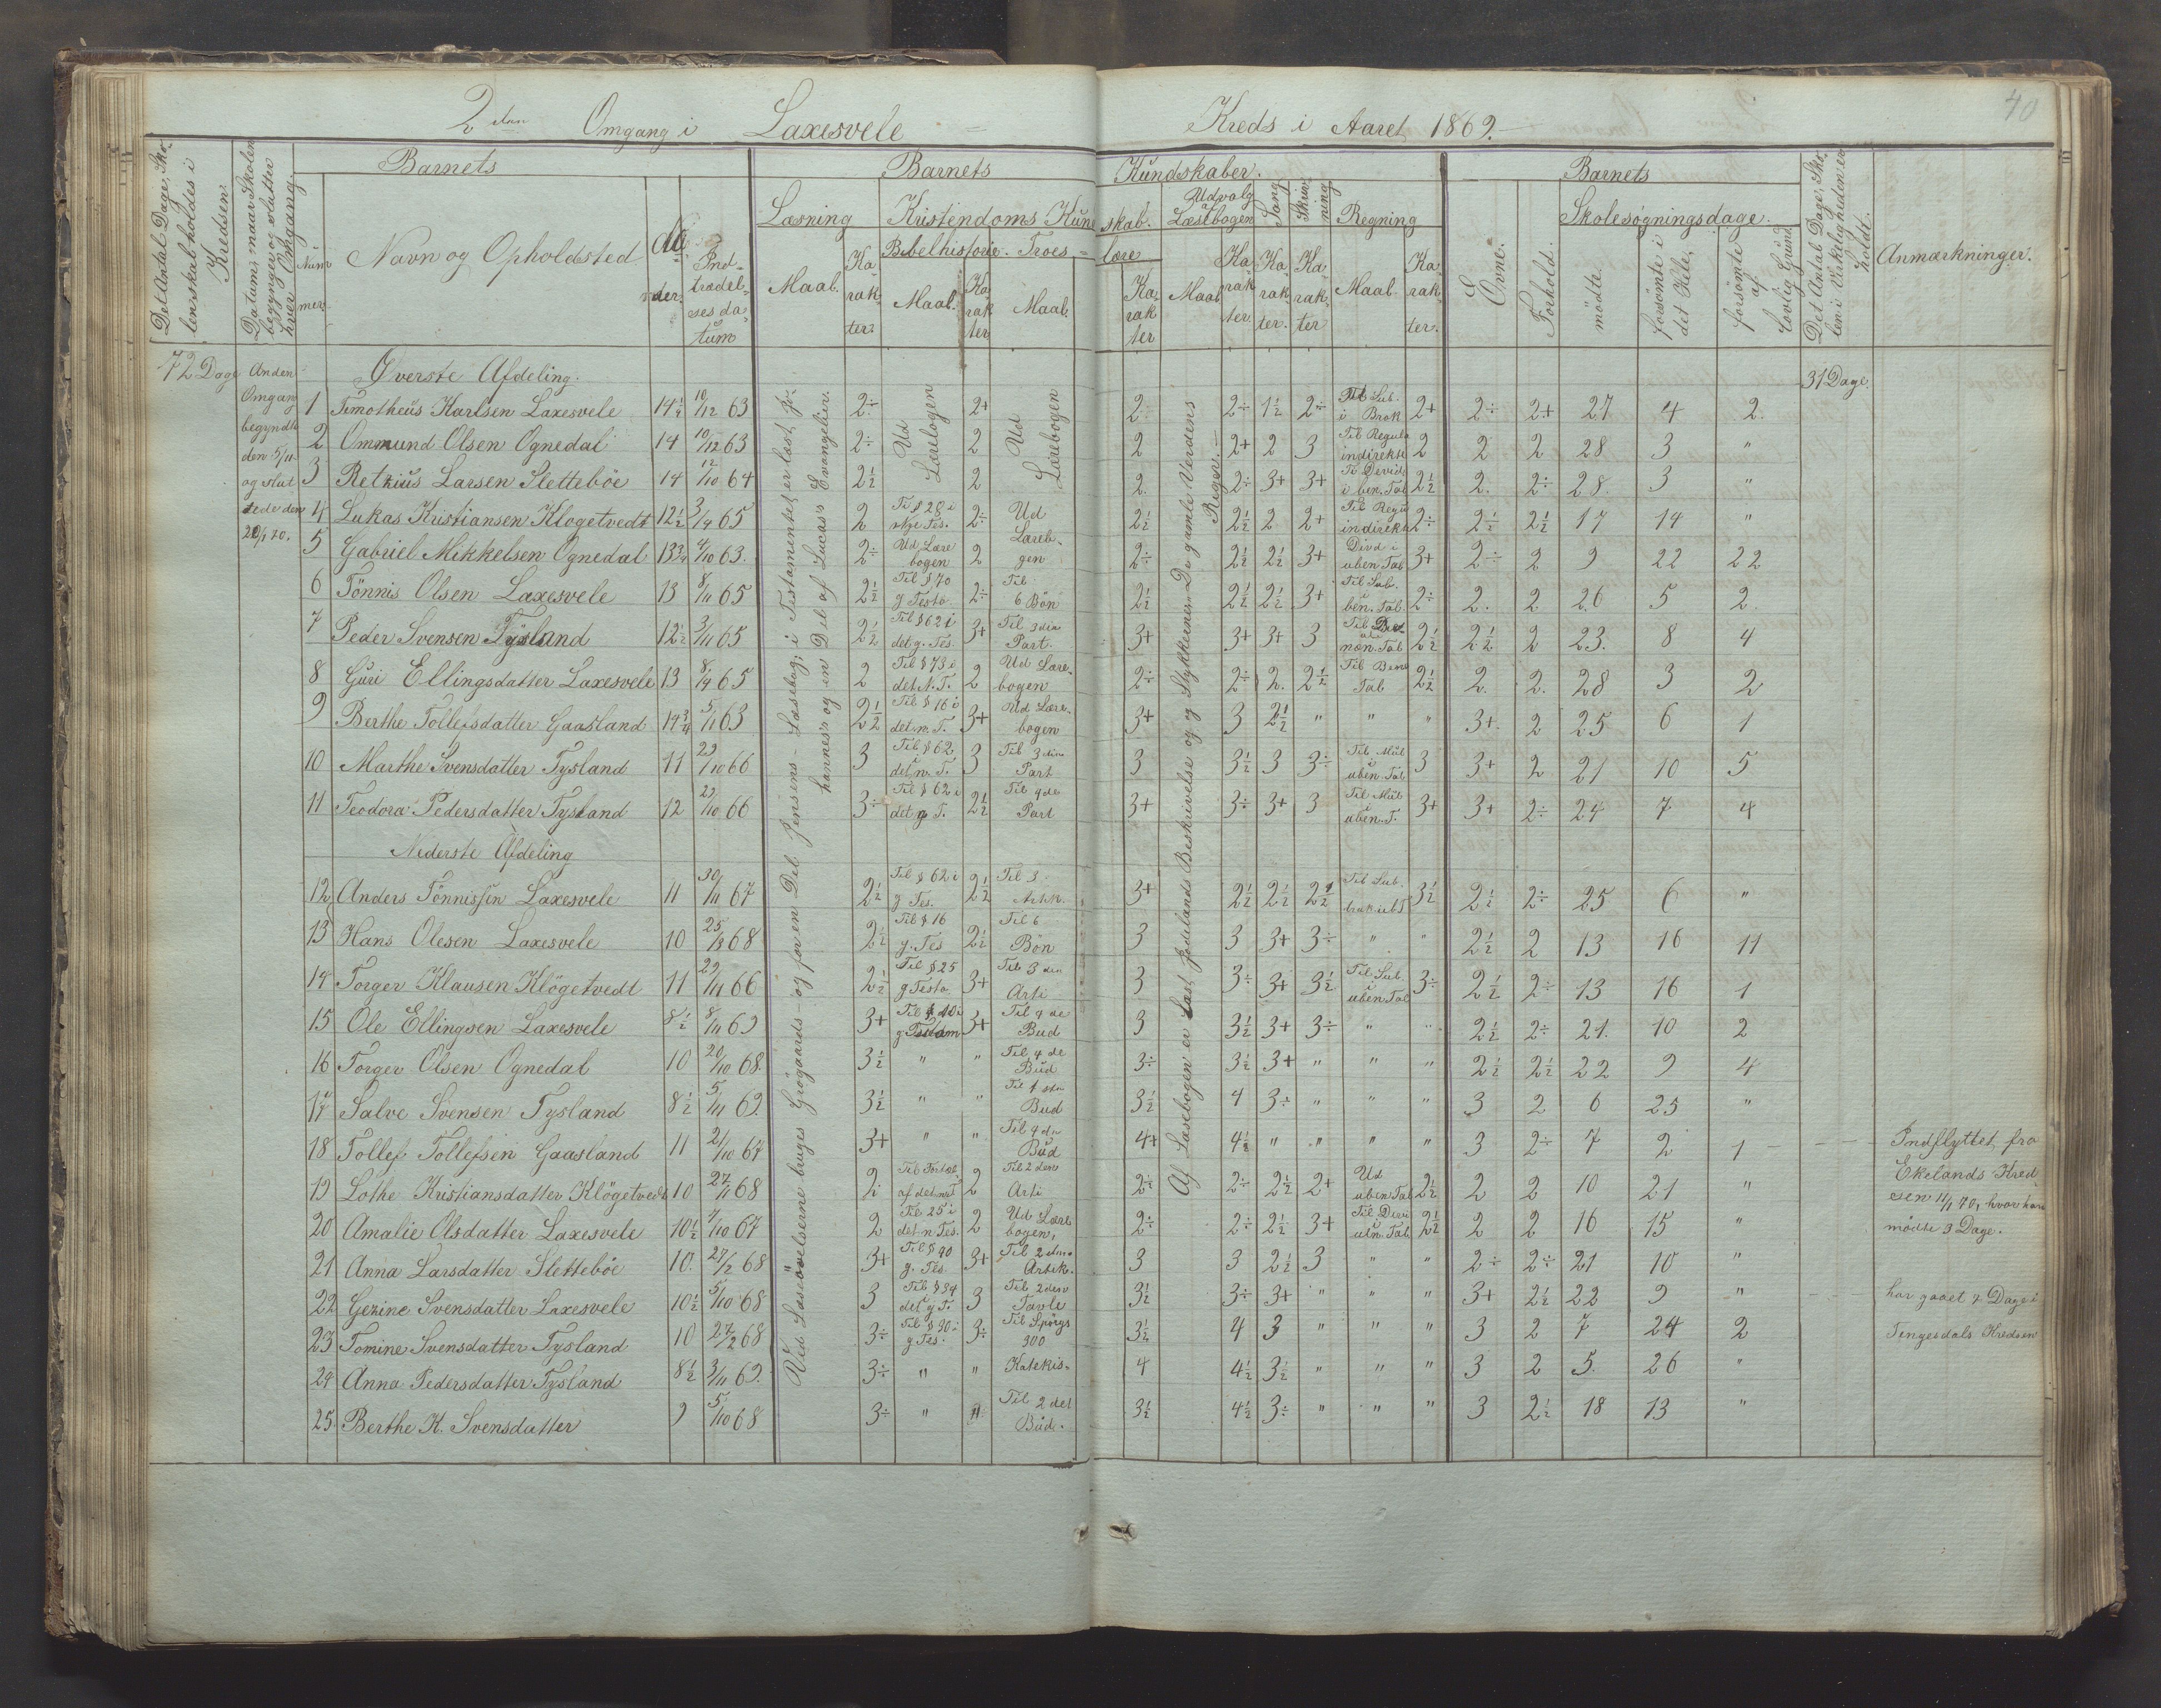 40
2den Omgang i Laxesvele Kreds i Aaret 1869.
Det Antal Dage, Sko-
len skal holdes i
Kredsen.
Datum, naar Skolen
begynder og slutter
hver Omgang.
Num-
mer
Barnets
Navn og Opholdsted
Al-
der.
Ind-
trædel-
ses da-
tum
Barnets Kundskaber.
Læsning Kristendoms Kund skab. Udvalg af Læsebogen Sang Skriv-ning Regning
Maal. Ka-rak-ter. Bibelhistorie. Troes- lære
Maal. Ka-rak-ter Maal. Ka-rak-ter Maal Ka-rak-ter Ka-rak-ter. Ka-rak-ter Maal Ka-rak-ter.
Barnets
Evne. Forhold. Skolesøgningsdage.
mödte. forsömte i det Hele, forsömte af lovlig Grund
Det Antal Dage, Sko-
len i Virkeligheden er
holdt.
Anmærkninger.
72 Dage
Anden
Omgang
begyndte
den 5/11
og slut-
tede den
20.
31 Dage.
Ved Læseövelserne bruges Grögaards og for en Del Jensens Læsebog; i Testamentet er læst Jo-
hannes's og en Del af Lucas's Evangelier.
Af Læsebogen er læst Fodelands Beskrivelse og Stykkerne "De gamle Verdens
Riger".
Øverste Afdeling.
1 Timotheus Karlsen Laxesvele 14½ 10/12 63 2÷ Ud Lærebogen 2+ Ud Lærebogen 2÷ 2÷ 1½ 2÷ Til Sub. i Brøk 2+ 2÷ 2+ 27 4 2
2 Ommund Olsen Ognedal 14 10/12 63 2÷ 2 2 2+ 2 3 Til Regula indirekte 2 2 2 28 3 "
3 Retzius Larsen Sletteböe 14 12/10 64 2½ 2 2. 2÷ 3+ 3+ Til Devid. i ben. Tal 2½ 2. 2÷ 28. 3 "
4 Lukas Kristiansen Klogetvedt 12½ 3/4 65 2 Til § 28 i nye Tes. 2÷ Ud Læreb- 2½ 2½ 2 2+ Til Regu indirekte 2÷ 2½ 2½ 17 14 "
5 Gabriel Mikkelsen Ognedal 13¾ 4/10 63. 2÷ Ud Lære bogen 2 gen 2÷ 2½ 2½ 3+ Divd i uben. Tal 3+ 2÷ 2 9 22 22
6 Tönnis Olsen Laxesvele 13 8/11 65 2½ Til § 70 g Testa. 2÷ Til 6 Bön 2½ 2½ 2½ 3+ Til Sub. i ben. Tal. 2÷ 2. 2 26 5 2
7 Peder Svensen Tysland 12½ 3/11 65 2½ Til § 62 i det g. Tes. 3+ Til 3dia Part. 3+ 3+ 3+ 3 2½ 2½ 2 23. 8 4
8 Guri Ellingsdatter Laxesvele 13 8/4 65 2 Til § 73 i det N. T. 2 Ud Lære- bogen 2÷ 2÷ 2. 2½ Til Bene Tal 2½ 2. 2. 28 3 2
9 Berthe Tollefsdatter Gaasland 14¾ 5/11 63 2½ Til § 16 i det n. T. 3+ Ud Lære- bogen 3+ 3 2½ " " " 3+ 2 25 6 1
10 Marthe Svensdatter Tysland 11 29/10 66 3 Til § 62 i det n. T. 3 Til 3die Part 3 3½ 3 3÷ Til Mul i uben. Tal 3 3+ 2 21 10 5
11 Teodora Pedersdatter Tysland 12 29/10 66 3÷ Til § 62 i det g T. 2½ Til 4de Part 3+ 3÷ 3+ 3 Til Mul i uben. T. 3+ 3+ 2÷ 24 7 4
Nederste Afdeling
12 Anders Tönnissen Laxesvele 11 30/11 67 2½ Til § 62 i g Tes. 2½ Til 3. Artik. 3+ 2½ 2½ 2½ Til Sub. 3½ 2½ 2÷ 25 6 "
13 Hans Olesen Laxesvele 10 25/3 68 2½ Til § 16 g. Tes 2½ Til 6 Bön 3 3 3+ 3÷ " " 2½ 2 13 16 11
14 Torger Klausen Klögetvedt 11 29/11 66 2½ Til § 25 g Testa 3+ Til 3den Arti 3 3÷ 3+ 3½ Til Sub. i uben Tal 3÷ 2½ 2÷ 13 16 1
15 Ole Ellingsen Laxesvele 8½ 8/11 69 3+ Til § 10 i g Testam 3+ Til 4de Bud 3 3½ 3+ 3÷ " " 2½ 2÷ 21. 10 2
16 Torger Olsen Ognedal 10 20/10 68. 3½ " " Til 4de Bud 3÷ 3½ 3+ " " " 2½ 2½ 22 9 4
17 Salve Svensen Tysland 8½ 5/11 69. 3½ " " Til 1ste Bud 3½ 4 3÷ " " " 3 2 6 25 "
18 Tollef Tollefsen Gaasland 11 21/10 67 3+ " " Til 4de Bud 4+ 4½ " " " " 3 2÷ 7 2 1 Indflyttet fra
Ekelands Kred
sen 11/1 70, hvor han
mödte 3 Dage.
19 Lothe Kristiansdatter Klögetvedt 10 27/11 68 2 af det n. T. 2 Til 2den Arti 2½ 2÷ 2½ 2+ Ud uben Tal 2½ 2 2 10 21 "
20 Amalie Olsdatter Laxesvele 10½ 4/10 67 2 Til 25 i det n Tes. 2 Ud Lære bogen, 2÷ 2÷ 2½ 3+ Til Devi i uben. Tal. 2½ 2 2 16 15 "
21 Anna Larsdatter Sletteböe 10. 27/2 68 3+ Til § 40 g. Tes. 3+ Til 2den Artik. 3 3 2½ 3 " " 2÷ 2÷ 21 10 "
22 Gezine Svensdatter Laxesvele 10½ 5/10 68 3 Til § 34 i det g T. 3 Til 2den Tavle 3½ 3÷ 3+ " " " 3+ 2½ 22 9 " har gaaet 7 Dage i
Tengesdals Kredsen
23 Tomine Svensdatter Tysland 10 27/2 68 3÷ Til § 30 i g Tes. 3÷ Til Spörgs 300 3½ 4 3 " " " 3 2 7 24 2
24 Anna Pedersdatter Tysland 8½ 3/11 69. 3÷ " " Katekis- 4 4½ 3½ " " " 3 2 5. 26 "
25 Berthe K. Svensdatter 9 5/10 68 3÷ " " Til 2det Bud. 3½ 4½ 3÷ " " " 3 2½ 18 13 "